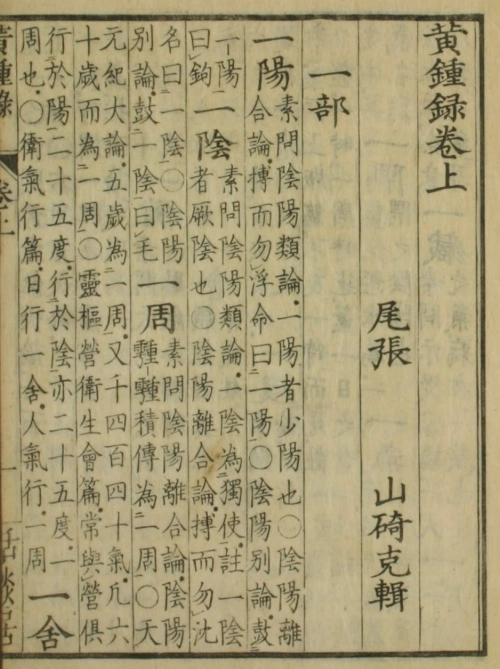 黄鍾録卷上
尾張　山碕克輯
一部
一陽
素問陰陽類論一陽者少陽也〇陰陽離
合論搏而勿浮命曰一陽〇陰陽別論鼓
一陽
曰鉤
一陰
素問陰陽類論一陰為獨使註一陰
者厥陰也〇陰陽離合論搏而勿沈
名曰一陰〇陰陽
別論鼓一陰曰毛
一周
素問陰陽離合論陰陽
積傳為一周〇天
元紀大論五歳為一周又千四百四十氣凡六
十歳而為一周〇靈樞營衛生會篇常與營俱
行於陽二十五度行於陰亦二十五度一
周也〇衛氣行篇日行一舍人氣行一周
一舍
黄鍾錄
卷上
一